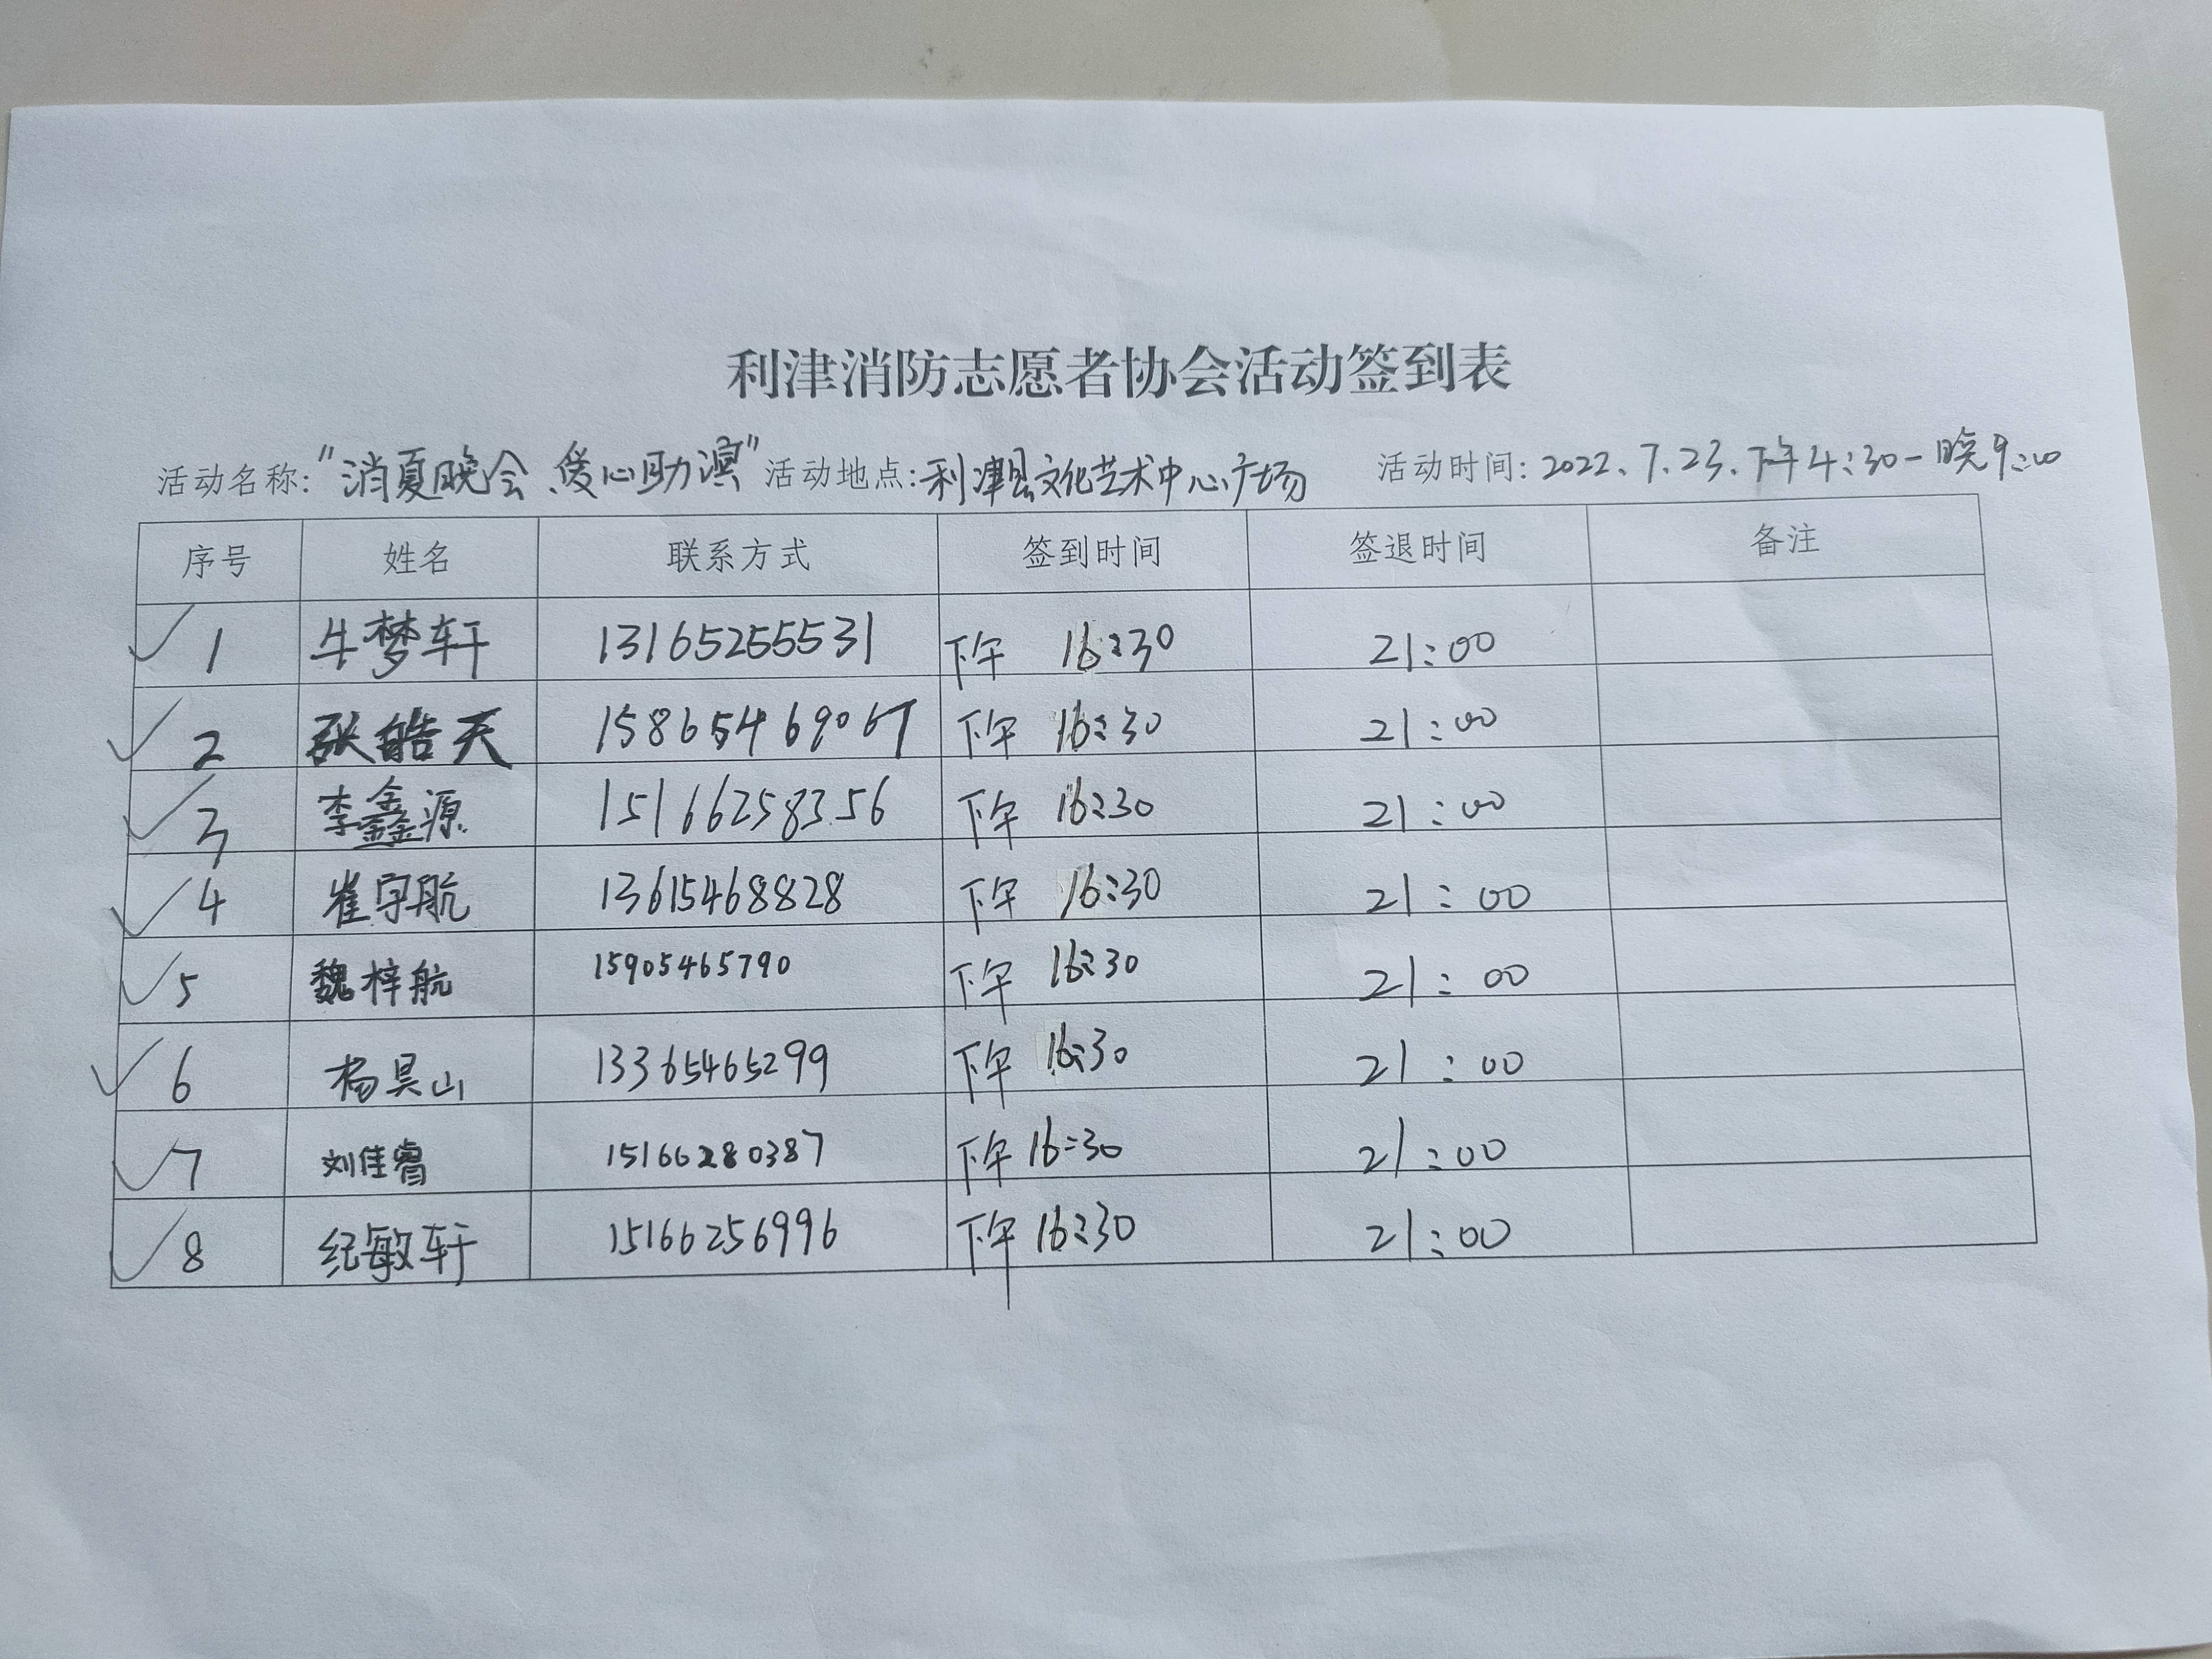 利津消防志愿者协会活动签到表
活动名称:"消夏晚会、爱心助演" 活动地点:利津县文化艺术中心广场 活动时间:2022.7.23.下午4:30-晚9:00
序号 姓名 联系方式 签到时间 签退时间 备注
✓1 牛梦轩 13165255531 下午 16:30 21:00
✓2 张皓天 15865469067 下午 16:30 21:00
✓3 李鑫源 15166258356 下午 16:30 21:00
✓4 崔宇航 13615468828 下午 16:30 21:00
✓5 魏梓航 15905465790 下午 16:30 21:00
✓6 杨昊山 13365465299 下午 16:30 21:00
✓7 刘佳睿 15166280387 下午 16:30 21:00
✓8 纪敏轩 15166256996 下午 16:30 21:00